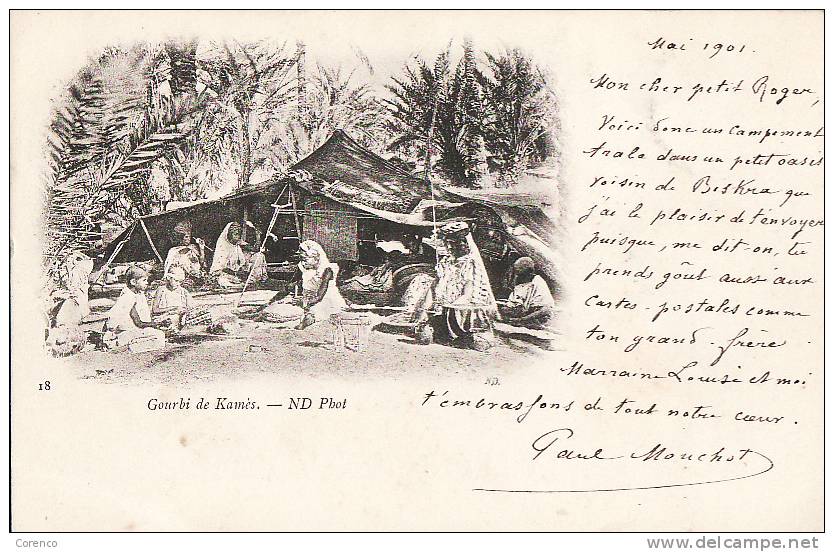 Mai 1901.
Mon cher petit Roger,
Voici donc un Campement
Arabe dans un petit oasis
voisin de Biskra que
j'ai le plaisir de t'envoyer
puisque, me dit-on, tu
prends goût aussi aux
Cartes-postales comme
ton grand-frère
Marraine Louise et moi
t'embrassons de tout notre cœur.
Paul Mouchot
18
ND.
Gourbi de Kamès. — ND Phot
Corenco
www.delcampe.net